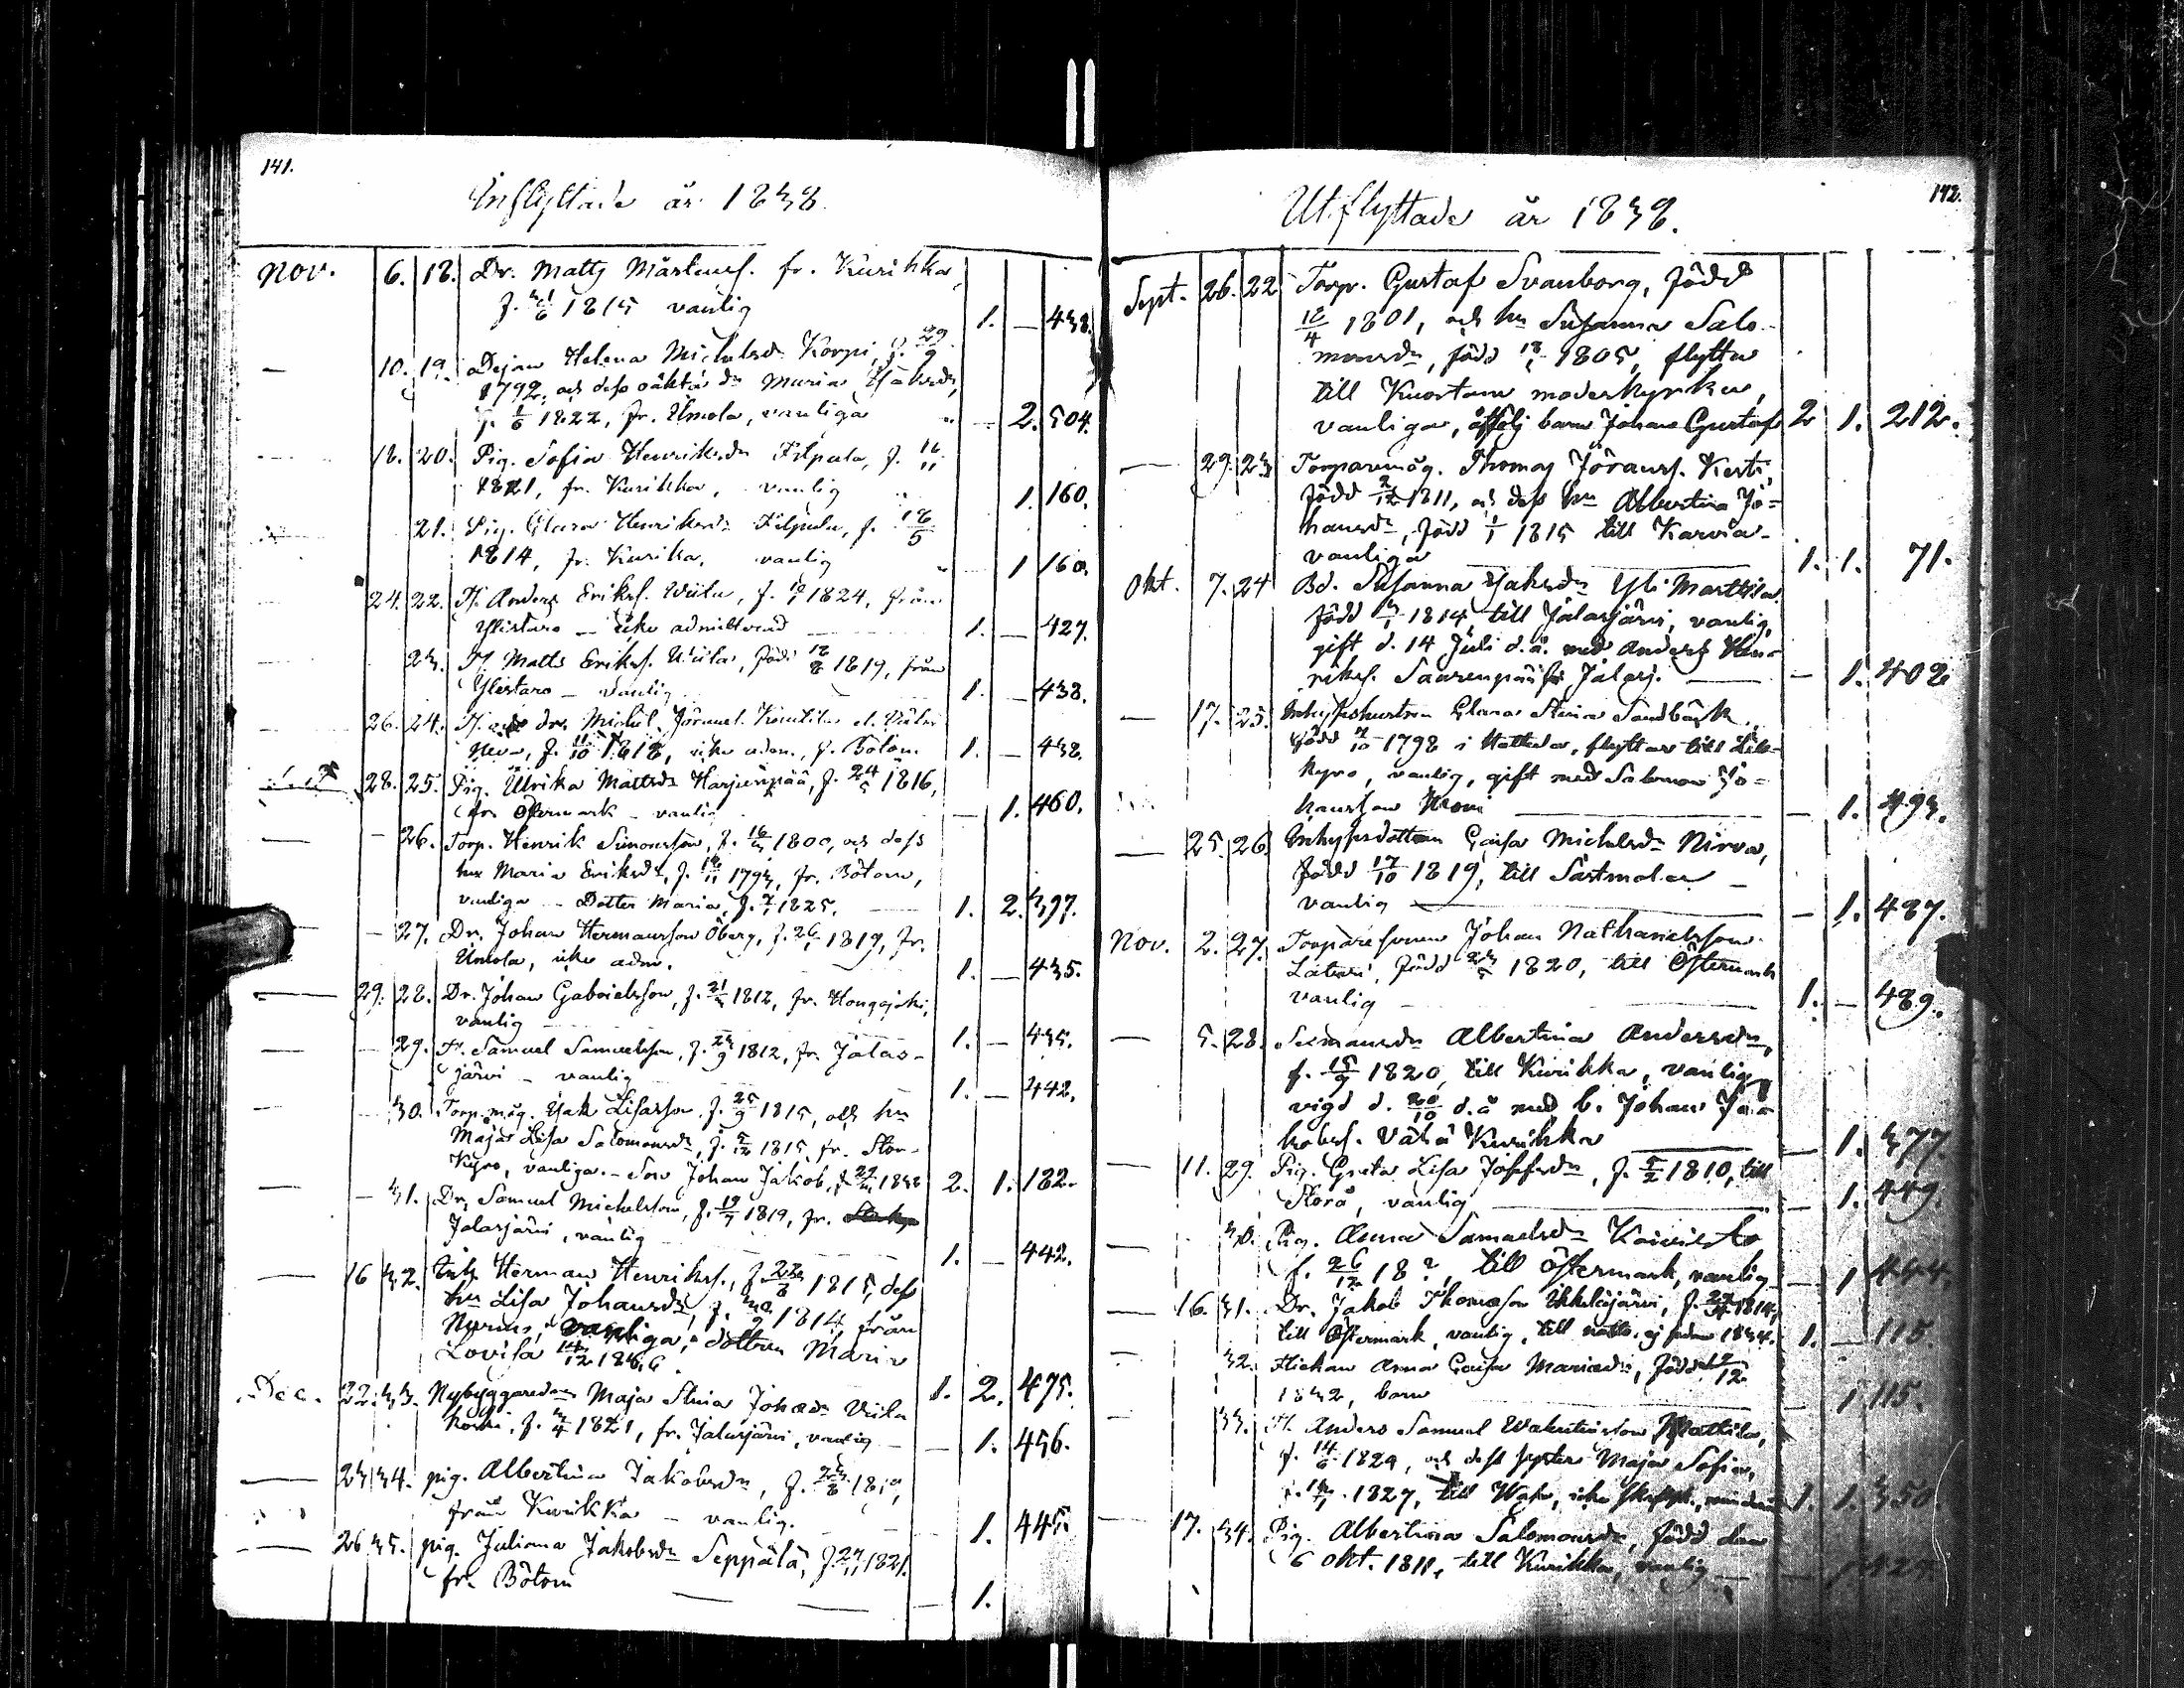 141.
Inflyttade år 1838.
Nov. 6. 18. Dr. Matts Mårtensf. fr. Kurikka,
f. 31/6 1815 vanlig 1. — 438.
— 10. 19. Dejan Helena Michelsdr Korpi, f. 29/9
1792, och dess oäkta dr Maria
f. 1/6 1822, fr. Ilmola, vanliga — 2. 504.
18. 20. Pig. Sofia Henriksdr Filpula, f. 16/11
1821, fr. Kurikka, vanlig 1. 160.
21. Pig. Clara Henriksdr Filpula, f. 18/5
1814, fr. Kurika, vanlig 1 160.
24. 22. Anders Eriksf. Wiita, f. 1824, från
Ylistaro — icke admitterad 1. — 427.
23. Matts Eriksf. Wiita, född 18/8 1819, från
Ylistaro — vanlig 1. — 438.
26. 24. dr. Michel Jöransf.
f. 11/10 1818, icke adm., f. Bötom 1. — 438.
28. 25. Pig. Ulrika Mattsdr Harjunpää, f. 24/5 1816,
fr. Östermark — vanlig — 1. 460.
— — 26. Torp. Henrik Simonsson, f. 16/3 1800, och dess
hu Maria Eriksdr, f. 18/11 1793, fr. Bötom,
vanliga — Dotter Maria, f. 1825. 1. 2. 397.
— — 27. Dr. Johan Hermansson Öberg, f. 26/1 1819, fr.
Ilmola, icke adm. 1. — 435.
— 29. 28. Dr. Johan Gabrielsson, f. 21/3 1812, fr. Hongojoki,
vanlig 1. — 435.
— — 29. Samuel Samuelsson, f. 23/9 1812, fr. Jalas-
järvi — vanlig 1. — 442.
— — 30. Torp. måg. Isak Lisasson, f. 25/9 1815, och hu
Maja Lisa Salomonsdr, f. 5/12 1815, fr. Stor-
Kyro, vanliga. — Son Johan Jakob, f. 1838 2. 1. 182.
— — 31. Dr. Samuel Michelsson, f. 19/7 1819, fr.
Jalasjärvi, vanlig 1. — 442.
— 16 32. Inh. Herman Henriksf., f. 22/6 1815, dess
hu Lisa Johansdr, f. 1814 från
Nurmo, vanliga, dottren Maria
Lovisa 14/12 1836 1. 2. 475.
Dec. 22. 33. Nybyggaredr Maja Stina Johansdr Viita
koski, f. 3/4 1821, fr. Jalasjärvi, vanlig — 1. 456.
— 23 34. pig. Albertina Jakobsdr, f. 23/8 1819,
från Kurikka — vanlig. 1. 445.
— 26 35. pig. Juliana Jakobsdr Seppälä, f. 1821.
fr. Bötom — 1.
142.
Utflyttade år 1838.
Sept. 26. 22 Torp. Gustaf Svanborg, född
18/4 1801, och hu Susanna Salo-
monsdr, född 18/1 1805, flytta
till Kuortane moderkyrka,
vanliga, åtfölj barn Johan Gustaf 2 1. 212.
— 29. 23 Torparemåg. Thomas Jöransf. Kerti,
född 2/12 1811, och dess hu Albertina Jo-
hansdr, född 1/1 1815 till Karvia
vanliga 1. 1. 71.
Okt. 7. 24 Bd. Susanna Isaksdr Yli Marttila
född 3/1 1814, till Jalasjärvi, vanlig,
gift d. 14 Juli d.å. med Anders Hen-
riksf. Saarenpää fr. Jalasj. — 1. 402
— 17. 25. Inhyseshustrun Clara Stina Sandbäck,
född 1798 i Hattula, flyttar till Lill-
Kyro, vanlig, gift med Salomon Jo-
hansson — 1. 493.
— 25. 26. Inhysesdottern Caisa Michelsdr Nirva,
född 17/10 1819, till Sastmola
vanlig — 1. 487.
Nov. 2. 27. Torparesonen Johan Nathanielsson
född 23/5 1820, till Östermark
vanlig 1. — 489.
— 5. 28. Albertina Andersdr,
f. 15/9 1820, till Kurikka, vanlig,
vigd d. 20/10 d.å med b. Johan Ja-
kobsf. Vähä Kurikka — 1. 377.
— 11. 29. Pig. Greta Lisa Josefsdr, f. 5/2 1810, till
Storå, vanlig — 1. 449.
— 30. Pig. Anna Samuelsdr Koivisto
f. 26/12 18 ?, till Östermark, vanlig — 1 444.
— 16. 31. Dr. Jakob Thomasson Ikkeläjärvi, f. 1814,
till Östermark, vanlig, till nattv. ej sedan 1834. 1. — 115.
— 32. Flickan Anna Caisa Mariasdr, född 12/12
1832, barn 1 115.
— 33. Anders Samuel Mattila,
f. 14/6 1829, och dess syster Maja Sofia,
1827, till Wasa, 1. 1. 350.
— 17. 34. Pig. Albertina Salomonsdr, född den
6 Okt. 1811, till Kurikka, vanlig —